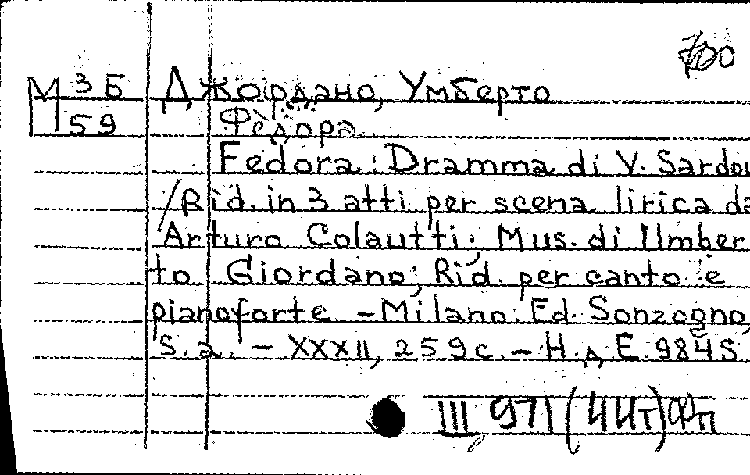 700
М 3 Б Джордано, Умберто
П 59 Федора
Fedora: Dramma di V. Sardou
/Rid. in 3 atti per scena lirica da
Arturo Colautti; Mus. di Umber
to Giordano; Rid. per canto e
pianoforte – Milano: Ed. Sonzogno,
S. a. – XXXII, 259 с. – Н. д. E 984 S
III 971 (ННТ)